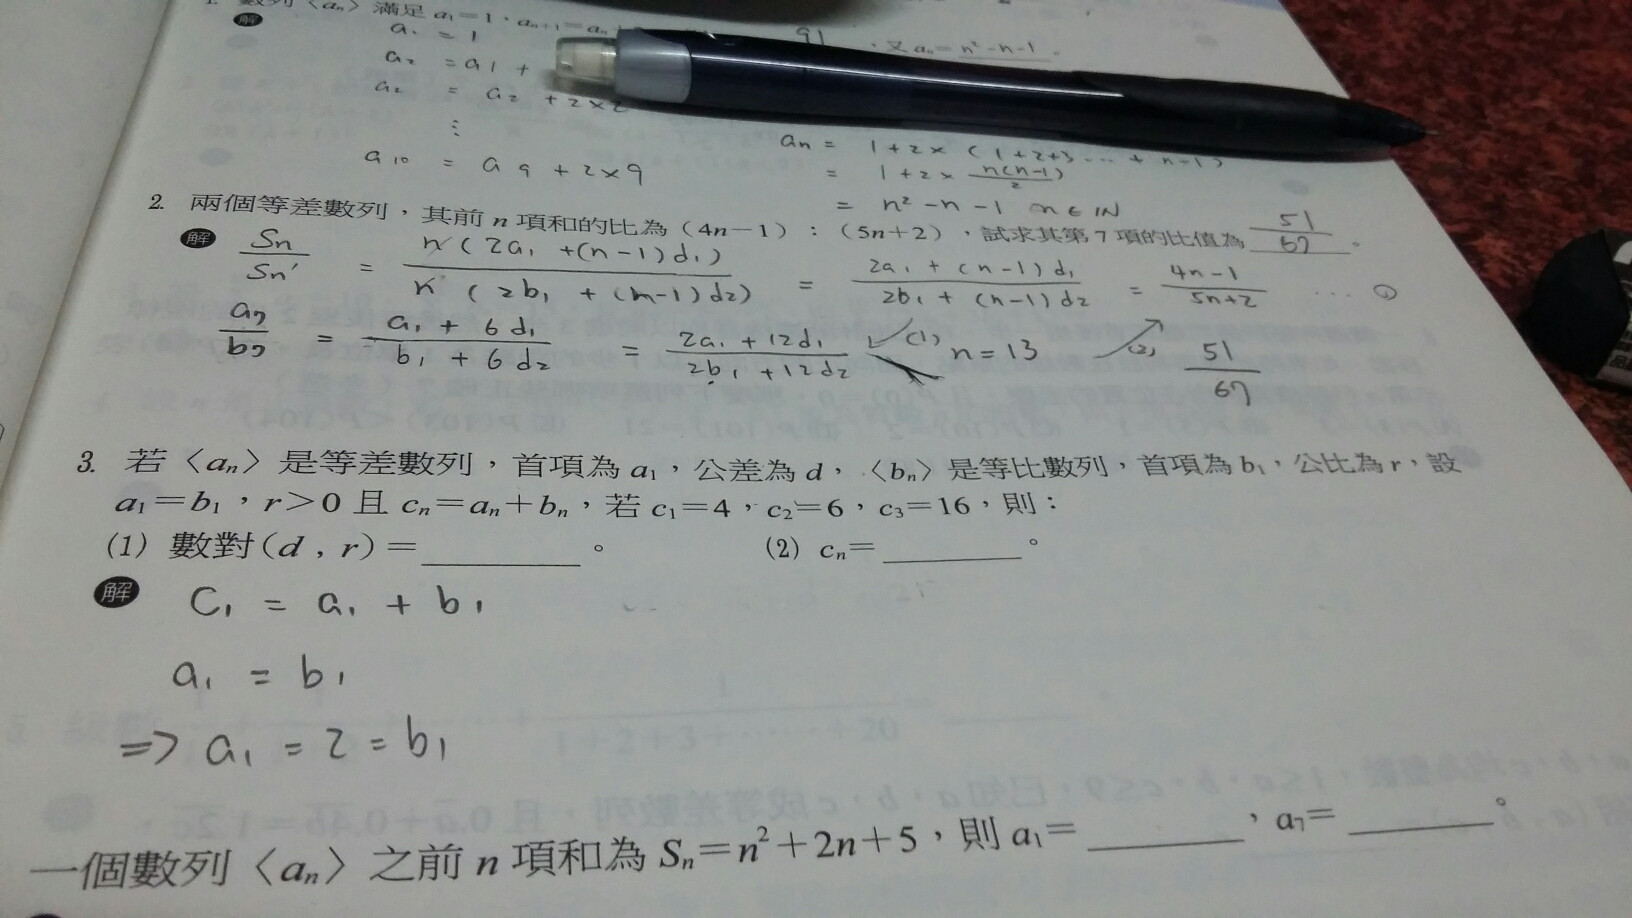 1. 數列〈aₙ〉滿足 a₁=1、aₙ₊₁=aₙ+ 91 ,又 aₙ=n²-n-1。
解 a₁ = 1
a₂ = a1 +
a₂ = a₂ + 2×2
⋮
a₁₀ = a₉ + 2×9
aₙ = 1+2×(1+2+3 ... + n-1)
= 1+2× n(n-1)/2
= n²-n-1 n∈IN
2. 兩個等差數列,其前 n 項和的比為(4n-1):(5n+2),試求其第 7 項的比值為 51/67 。
解 Sn/Sn' = n(2a₁+(n-1)d₁)/n(2b₁+(n-1)d₂) = 2a₁+(n-1)d₁/2b₁+(n-1)d₂ = 4n-1/5n+2 ... ①
a₇/b₇ = a₁+6d₁/b₁+6d₂ = 2a₁+12d₁/2b₁+12d₂ (1) n=13 (2) 51/67
3. 若〈aₙ〉是等差數列,首項為 a₁,公差為 d,〈bₙ〉是等比數列,首項為 b₁,公比為 r,設
a₁=b₁,r>0 且 cₙ=aₙ+bₙ,若 c₁=4,c₂=6,c₃=16,則:
(1) 數對(d , r)=______。 (2) cₙ=______。
解 C₁ = a₁ + b₁
a₁ = b₁
⇒ a₁ = 2 = b₁
一個數列〈aₙ〉之前 n 項和為 Sₙ=n²+2n+5,則 a₁=______,a₇=______。